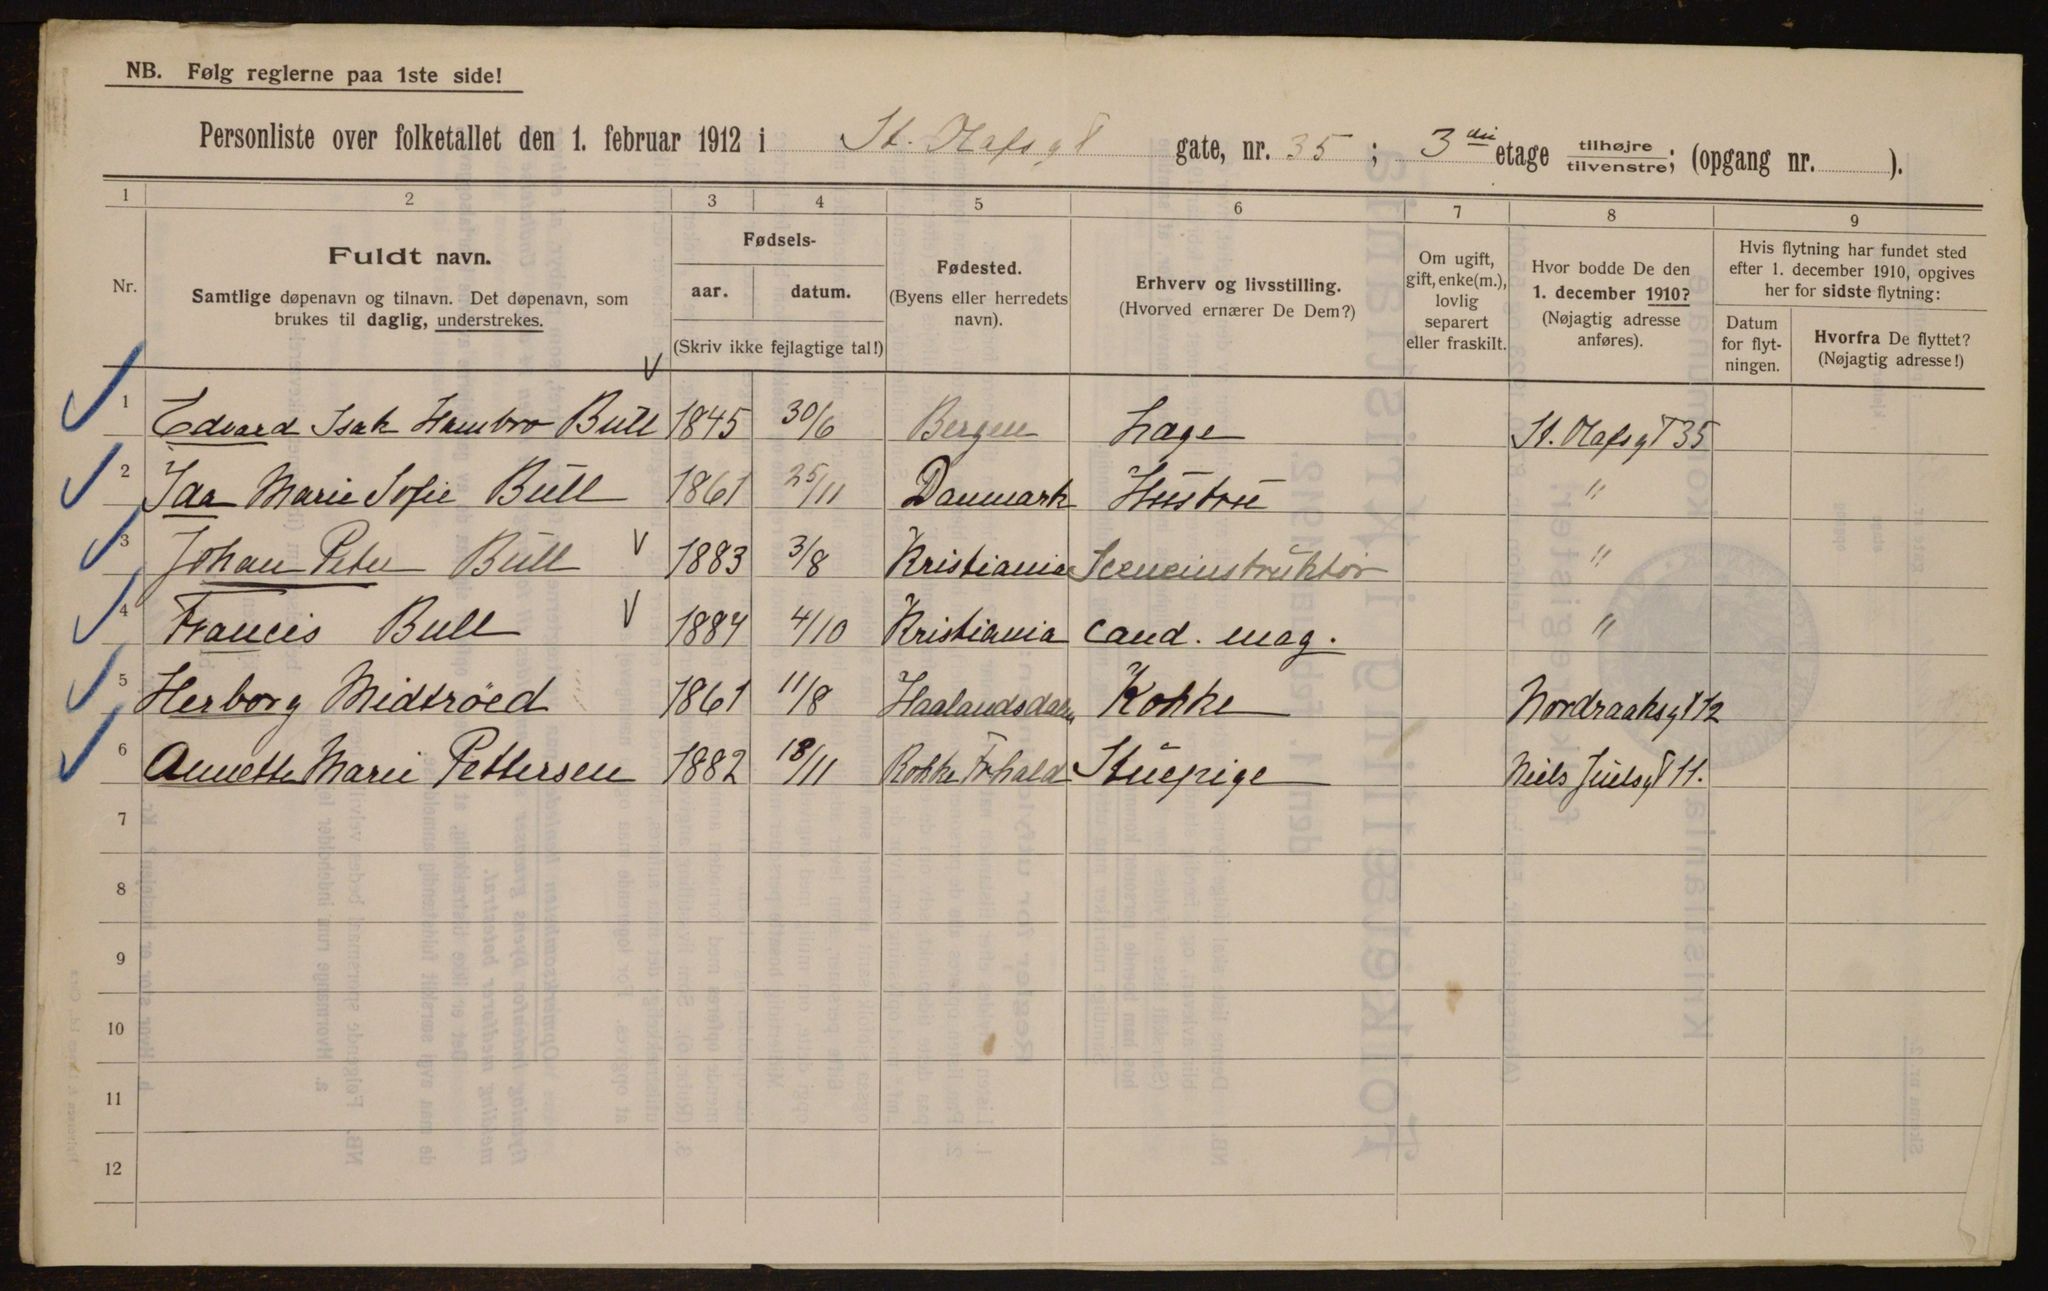 NB. Følg reglerne paa 1ste side!
Personliste over folketallet den 1. februar 1912 i St. Olafsgt gate, nr. 35; 3die etage tilhøjre tilvenstre; (opgang nr. ).
1 2 3 4 5 6 7 8 9
Nr.
Fuldt navn.
Samtlige døpenavn og tilnavn. Det døpenavn, som
brukes til daglig, understrekes.
Fødsels-
aar. datum.
(Skriv ikke fejlagtige tal!)
Fødested.
(Byens eller herredets
navn).
Erhverv og livsstilling.
(Hvorved ernærer De Dem?)
Om ugift,
gift, enke(m.),
lovlig
separert
eller fraskilt.
Hvor bodde De den
1. december 1910?
(Nøjagtig adresse
anføres).
Hvis flytning har fundet sted
efter 1. december 1910, opgives
her for sidste flytning:
Datum
for flyt-
ningen.
Hvorfra De flyttet?
(Nøjagtig adresse!)
1 Edvard Isak Hambro Bull 1845 30/6 Bergen Læge St. Olafsgt 35
2 Ida Marie Sofie Bull 1861 25/11 Danmark Hustru "
3 Johan Peter Bull 1883 3/8 Kristiania Sceneinstruktør "
4 Francis Bull 1887 4/10 Kristiania cand. mag. "
5 Herborg Midtröed 1861 11/8 Haalandsdalen Kokke Nordraaksgt 12
6 Annette Marie Pettersen 1882 18/11 Rokke Frhald Stuepige Niels Juelsgt 11.
7
8
9
10
11
12